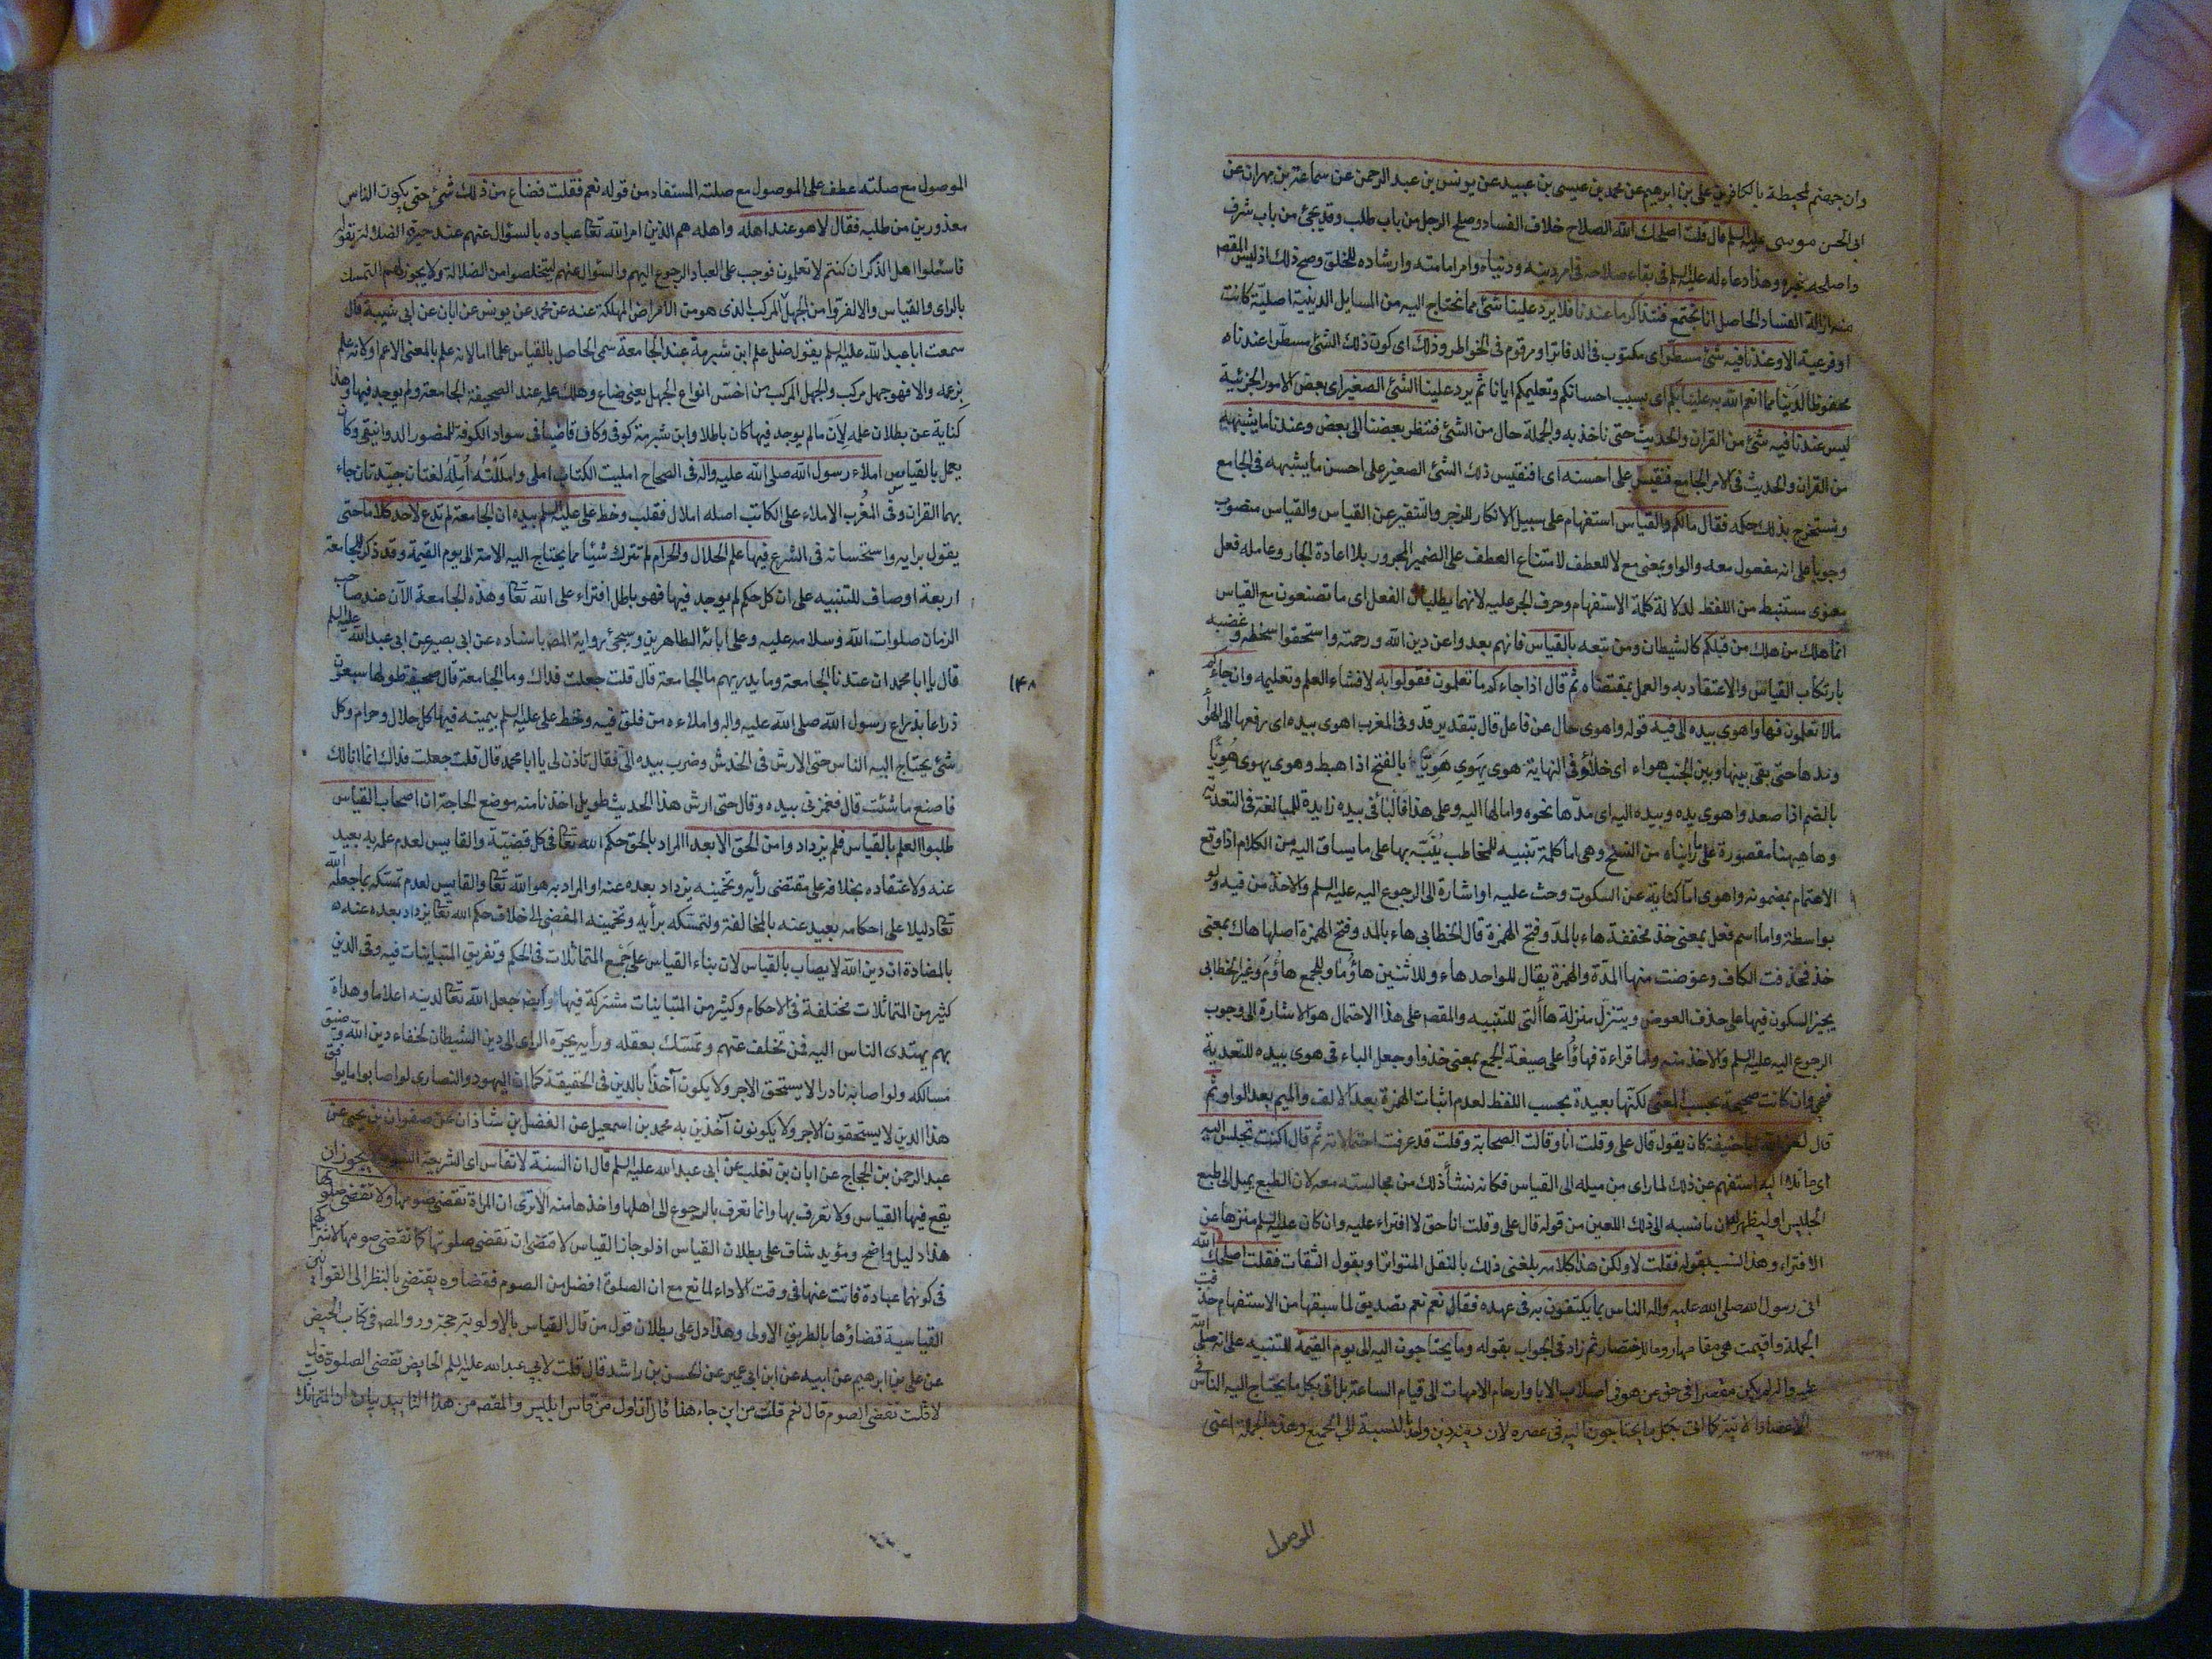 وان جهنم لمحيطة بالكافرين علي بن ابرهيم عن محمد بن عيسى بن عبيد عن يونس بن عبد الرحمن عن سماعة بن مهران عن
ابى الحسن موسى عليه السلم قال قلت اصلحك الله الصلاح خلاف الفساد وصلح الرجل من باب طلب وقد يجئ من باب شرف
واصلحه غيره وهذا دعاء له عليه السلم فى بقاء صلاحه فى امر دينه ودنياه وامر امامته وارشاده للخلق وصح ذلك اذ ليس المقصـ
منه ازالة الفساد الحاصل انا نجتمع فنتذاكر ما عندنا فلا يرد علينا شئ مما نحتاج اليه من المسايل الدينية اصلية كانت
او فرعية الا وعندنا فيه شئ مسطر اى مكتوب فى الدفاتر او مرقوم فى الخواطر وذلك اى كون ذلك الشئ مسطرا عندنا
محفوظا لدينا مما انعم الله به علينا بكم اى بسبب احسانكم وتعليمكم ايانا ثم يرد علينا الشئ الصغير اى بعض الامور الجزئية
ليس عندنا فيه شئ من القران والحديث حتى ناخذ به والجملة حال من الشئ فننظر بعضنا الى بعض وعندنا ما يشبهه
من القران والحديث فى الامر الجامع فنقيس على احسنه اى افنقيس ذلك الشئ الصغير على احسن ما يشبهه فى الجامع
ونستخرج بذلك حكمه فقال مالكم والقياس استفهام على سبيل الانكار للزجر والتنفير عن القياس والقياس منصوب
وجوبا على انه مفعول معه والواو بمعنى مع لا للعطف لامتناع العطف على الضمير المجرور بلا اعادة الجار وعامله فعل
معنوى مستنبط من اللفظ لدلالة كلمة الاستفهام وحرف الجر عليه لانهما يطلبان الفعل اى ما تصنعون مع القياس
انما هلك من هلك من قبلكم كالشيطان ومن تبعه بالقياس فانهم بعدوا عن دين الله ورحمته واستحقوا سخطه وغضبه
بارتكاب القياس والاعتقاد به والعمل بمقتضاه ثم قال اذا جاءكم ما تعلمون فقولوا به لافشاء العلم وتعليمه وان جاءكم
مالا تعلمون فها واهوى بيده الى فيه قوله واهوى حال عن فاعل قال بتقدير قد وفى المغرب اهوى بيده اى رفعها الى الهواء
ومدها حتى بقى بينها وبين الجنب هواء اى خلاء وفى النهاية هوى يهوى هويا بالفتح اذا هبط وهوى يهوى هويا
بالضم اذا صعد واهوى يده وبيده اليه اى مدها نحوه وامالها اليه وعلى هذا فالباء فى بيده زايدة للمبالغة فى التعدية
وها هيهنا مقصورة على ما رايناه من النسخ وهى اما كلمة تنبيه للمخاطب ينبه بها على ما يساق اليه من الكلام اذا وقع
الاهتمام بمضمونه واهوى اما كناية عن السكوت وحث عليه او اشارة الى الرجوع اليه عليه السلم والاخذ من فيه ولو
بواسطة واما اسم فعل بمعنى خذ مخففة هاء بالمد وفتح الهمزة قال الخطابى هاء بالمد وفتح الهمزة اصلها هاك بمعنى
خذ فحذفت الكاف وعوضت منها المدة والهمزة يقال للواحد هاء وللاثنين هاؤما وللجمع هاؤم وغير الخطابى
يجيز السكون فيها على حذف العوض ويتنزل منزلة ها التى للتنبيه والمقصـ على هذا الاحتمال هو الاشارة الى وجوب
الرجوع اليه عليه السلم والاخذ منه واما قراءة فهاؤا على صيغة الجمع بمعنى خذوا وجعل الباء فى هوى بيده للتعدية
فهى وان كانت صحيحة بحسب المعنى لكنها بعيدة بحسب اللفظ لعدم اثبات الهمزة بعد الالف والميم بعد الواو ثم
قال لعن الله ابا حنيفة كان يقول قال على وقلت انا وقالت الصحابة وقلت قد عرفت احتمالاته ثم قال اكنت تجلس اليه
اى مائلا اليه استفهم عن ذلك لما راى من ميله الى القياس فكانه نشأ ذلك من مجالسته معه لان الطبع يميل الى طبع
الجليس او ليظهر ان ما نسبه الى ذلك اللعين من قوله قال على وقلت انا حق لا افتراء عليه وان كان عليه السلم منزها عن
الافتراء وهذا انسب بقوله فقلت لا ولكن هذا كلامه بلغنى ذلك بالنقل المتواتر او بقول الثقات فقلت اصلحك الله
اتى رسول الله صلى الله عليه واله الناس بما يكتفون به فى عهده فقال نعم نعم تصديق لما سبقها من الاستفهام حذفت
الجملة واقيمت هى مقامها روما للاختصار ثم زاد فى الجواب بقوله وما يحتاجون اليه الى يوم القيمة للتنبيه على انه صلى الله
عليه واله لم يكن مقصرا فى حق من هو فى اصلاب الابا وارحام الامهات الى قيام الساعة بل اتى بكل ما يحتاج اليه الناس فى
الاعصار الاتية كما اتى بكل ما يحتاجون اليه فى عصره لان دينه دين واحد بالنسبة الى الجميع وهذه الجملة اعنى
الموصول
الموصول مع صلته عطف على الموصول مع صلته المستفاد من قوله نعم فقلت فضاع من ذلك شئ حتى يكون الناس
معذورين من طلبه فقال لا هو عند اهله واهله هم الذين امر الله تعا عباده بالسؤال عنهم عند حيرتهم الضلالة بقوله
فاسئلوا اهل الذكر ان كنتم لا تعلمون فوجب على العباد الرجوع اليهم والسؤال عنهم ليتخلصوا من الضلالة ولا يجوز لهم التمسك
بالراى والقياس والا لفرقوا من الجهل المركب الذى هو من الامراض المهلكة عنه عن محمد عن يونس عن ابان عن ابى شيبة قال
سمعت ابا عبد الله عليه السلم يقول ضل علم ابن شبرمة عند الجامعة سمى الحاصل بالقياس علما اما لانه علم بالمعنى الاعم او لانه علم
بزعمه والا فهو جهل مركب والجهل المركب من اخس انواع الجهل يعنى ضاع وهلك علمه عند الصحيفة الجامعة ولم يوجد فيها وهذا
كناية عن بطلان علمه لان مالم يوجد فيها كان باطلا وابن شبرمة كوفى وكان قاضيا فى سواد الكوفة للمنصور الدوانيقى وكان
يعمل بالقياس املاء رسول الله صلى الله عليه واله فى الصحاح امليت الكتاب املى وامللته امله لغتان جيدتان جاء
بهما القران وفى المغرب الاملاء على الكاتب اصله املال فقلب وخط على عليه السلم بيده ان الجامعة لم تدع لاحد كلاما حتى
يقول برايه واستحسانه فى الشرع فيها علم الحلال والحرام لم تترك شيئا مما يحتاج اليه الامة الى يوم القيمة وقد ذكر للجامعة
اربعة اوصاف للتنبيه على ان كل حكم لم يوجد فيها فهو باطل افتراء على الله تعا وهذه الجامعة الآن عند صاحب
الزمان صلوات الله وسلامه عليه وعلى ابائه الطاهرين وسيجئ رواية المصـ باسناده عن ابى بصير عن ابى عبد الله عليه السلم
قال يا ابا محمد ان عندنا الجامعة وما يدريهم ما الجامعة قال قلت جعلت فداك وما الجامعة قال صحيفة طولها سبعون
ذراعا بذراع رسول الله صلى الله عليه واله واملاءه من فلق فيه وخط على عليه السلم بيمينه فيها كل حلال وحرام وكل
شئ يحتاج اليه الناس حتى الارش فى الخدش وضرب بيده الى فقال تاذن لى يا ابا محمد قال قلت جعلت فداك انما انا لك
فاصنع ما شئت قال فغمزنى بيده وقال حتى ارش هذا الحديث طويل اخذنا منه موضع الحاجة ان اصحاب القياس
طلبوا العلم بالقياس فلم يزداد وا من الحق الا بعدا المراد بالحق حكم الله تعا فى كل قضية والقايس لعدم علمه به بعيد
عنه ولاعتقاده بخلافه على مقتضى رأيه وتخمينه يزداد بعده عنه او المراد به هو الله تعا والقايس لعدم تمسكه بما جعله الله
تعا دليلا على احكامه بعيد عنه بالمخالفة ولتمسكه برأيه وتخمينه المفضى الى خلاف حكم الله تعا يزداد بعده عنه
بالمضادة ان دين الله لا يصاب بالقياس لان بناء القياس على جمع المتماثلات فى الحكم وتفريق المتباينات فيه وفى الدين
كثير من المتماثلات مختلفة فى الاحكام وكثير من المتباينات مشتركة فيها وايضا جعل الله تعا لدينه اعلاما وهداة
بهم يهتدى الناس اليه فمن تخلف عنهم وتمسك بعقله ورأيه يجره الراى الى دين الشيطان لخفاء دين الله وضيق
مسالكه ولو اصابه نادرا لا يستحق الاجر ولا يكون آخذا بالدين فى الحقيقة كما ان اليهود والنصارى لو اصابوا ما يوافق
هذا الدين لا يستحقون الاجر ولا يكونون آخذين به محمد بن اسمعيل عن الفضل بن شاذان عن صفوان بن يحيى عن
عبد الرحمن بن الحجاج عن ابان بن تغلب عن ابى عبد الله عليه السلم قال ان السنة لا تقاس اى الشريعة النبوية لا يجوز ان
يقع فيها القياس ولا تعرف بها وانما تعرف بالرجوع الى اهلها واخذها منه الا ترى ان المراة تقضى صومها ولا تقضى صلوتها
هذا دليل واضح ومؤيد شاف على بطلان القياس اذ لو جاز القياس لاقتضى ان تقضى صلوتها كما تقضى صومها لاشتراكهما
فى كونهما عبادة فاتت عنها فى وقت الاداء لمانع مع ان الصلوة افضل من الصوم فقضاوه يقتضى بالنظر الى القوانين
القياسية قضاؤها بالطريق الاولى وهذا دل على بطلان قول من قال القياس بالاولوية حجة ورد المصـ فى كتاب الحيض
عن على بن ابرهيم عن ابيه عن ابن ابى عمير عن الحسن بن راشد قال قلت لابى عبد الله عليه السلم الحايض تقضى الصلوة قال
لا قلت تقضى الصوم قال نعم قلت من اين جاء هذا قال ان اول من قاس ابليس والمقصـ من هذا التاييد بيان ان المتماثلات
١٤٨